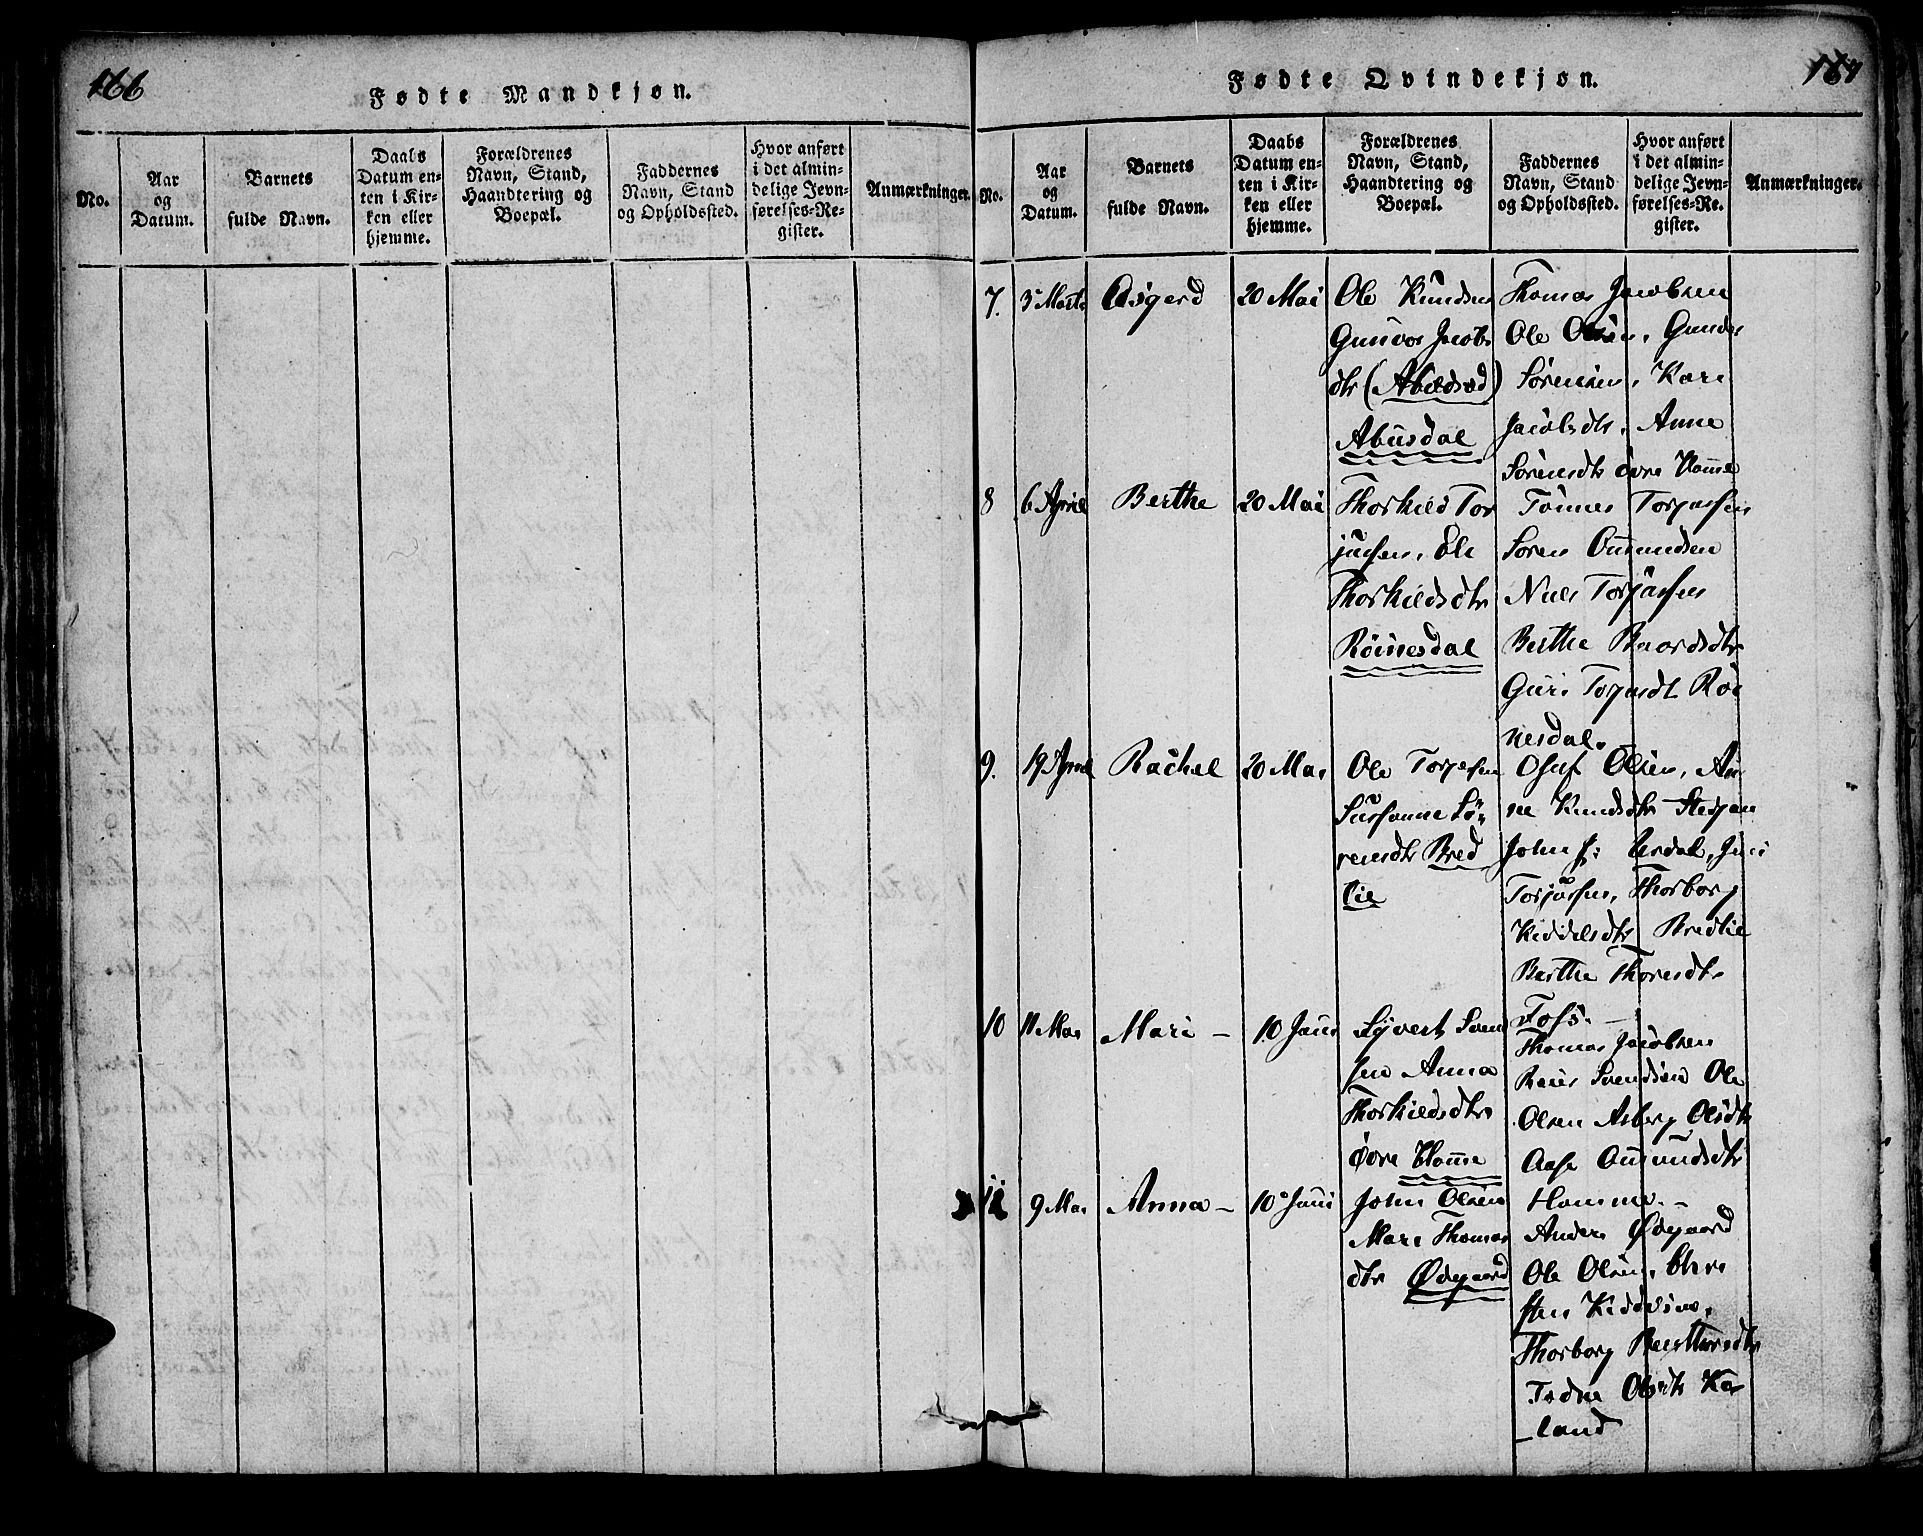 166
Fødte Mandkjøn.
No.
Aar
og
Datum.
Barnets
fulde Navn.
Daabs
Datum en-
ten i Kir-
ken eller
hjemme.
Forældrenes
Navn, Stand,
Haandtering og
Boepæl.
Faddernes
Navn, Stand
og Opholdssted.
Hvor anført
i det almin-
delige Jevn-
førelses-Re-
gister.
Anmærkninger.
167
Fødte Qvindekjøn.
No.
Aar
og
Datum.
Barnets
fulde Navn.
Daabs
Datum en-
ten i Kir-
ken eller
hjemme.
Forældrenes
Navn, Stand,
Haandtering og
Boepæl.
Faddernes
Navn, Stand
og Opholdssted.
Hvor anført
i det almin-
delige Jevn-
førelses-Re-
gister.
Anmærkninger.
7. 3 Marts Asgerd 20 Mai
Ole Knudsen
Gunvor Jacobs
dtr (
Abusdal
Thomas Jacobsen
Ole Olsen, Gunder
Sørensen, Kari
Jacobsdtr, Anne
Sørensdtr øvre Homme
8 6 April Berthe 20 Mai
Thorkild Tor
jussen, Eli
Thorkildsdtr
Röinesdal
Tönnes Torjussen
Søren Omundsen
Niels Torjussen
Berthe Baardsdtr
Guri Torjusdt Röi
nesdal.
9. 19 April Rachel 20 Mai
Ole Torjusen
Susanne Sö-
rensdtr Bred
lie
Oluf Olsen, An
ne Knudsdtr Stegan
John s: Usdal, Jens
Torjussen, Thorborg
Keddelsdtr Bredlie
Berthe Thoresdtr
Foss. —
10 11 Mai Mari — 10 Juni
Syvert Svend
sen Anna
Thorkildsdtr
Øvre Homme
Thomas Jacobsen
Reier Svendsen Ole
Olsen Asberg Olsdtr
Aase Omundsdtr
Homme. —
11 9 Mai Anna — 10 Juni
John Olsen
Mari Thomas
dtr Ødegaard
Anders Ødegaard
Ole Olsen, Chri
sten
Thorborg
Todne Olsdtr Ka
land